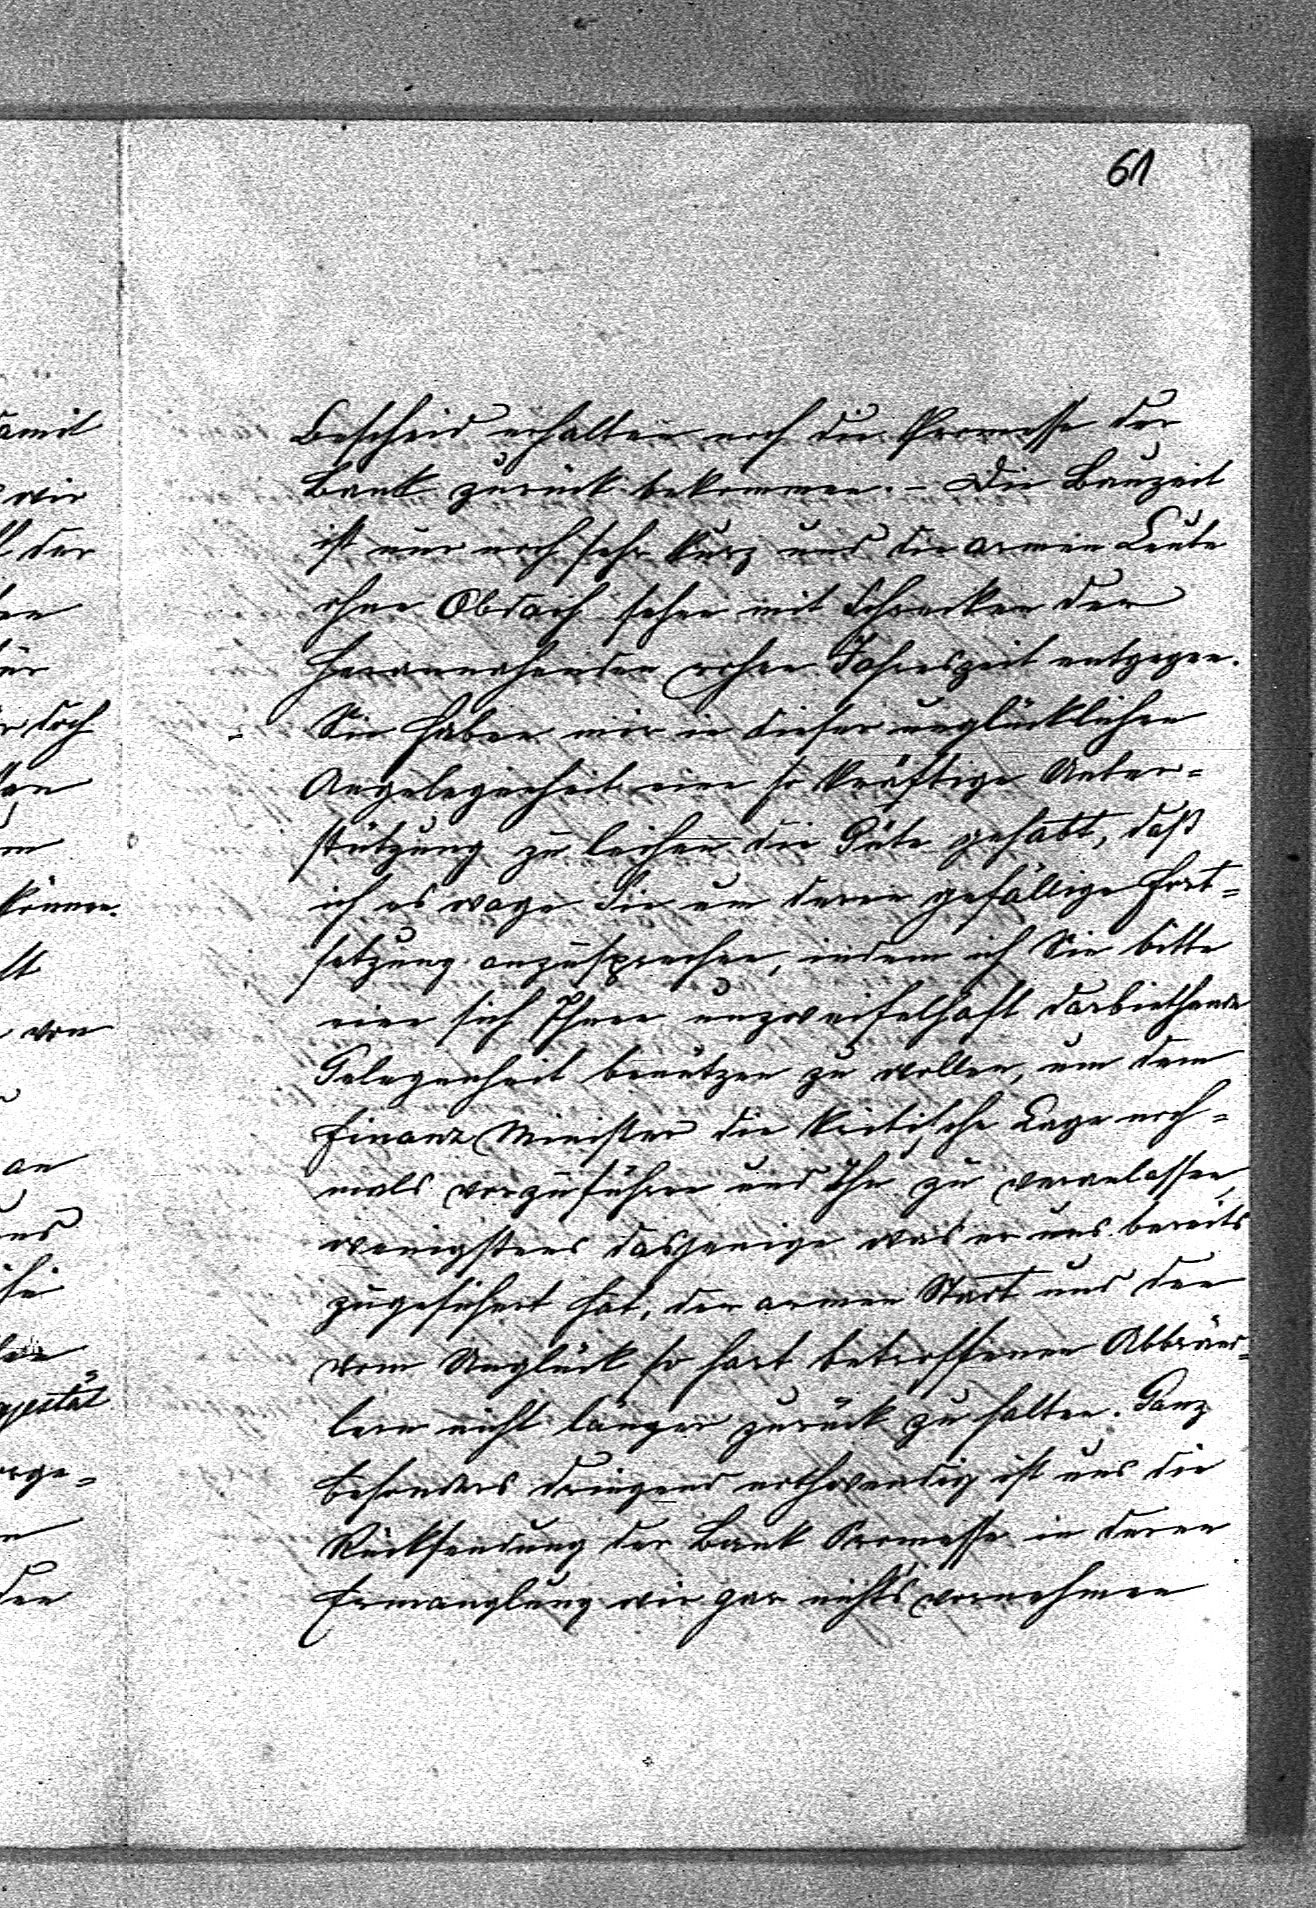 61
Bescheid erhalten noch die Promesse der
Bank zurück bekommen. – Die Bauzeit
ist nur noch sehr kurz und die armen Leute
ohne Obdach sehen mit Schrecken der
herannahenden rohen Jahreszeit entgegen.
Sie haben mir in dieser unglücklichen
Angelegenheit eine so kräftige Unter=
stützung zu leihen die Güte gehabt, daß
ich es wage Sie um deren gefällige Fort=
setzung anzusprechen, indem ich Sie bitte
eine sich Ihnen unzweifelhaft darbiethende
Gelegenheit benützen zu wollen, um dem
Finanz Minister die kritische Lage noch=
mals vorzuführen und Ihn zu veranlassen,
wenigstens dasjenige was er uns bereits
zugesichert hat, der armen Stadt und den
vom Unglück so hart betroffenen Abbränd=
lern nicht länger zurück zu halten. Ganz
besonders dringend nothwendig ist uns die
Rücksendung der Bank Promesse in deren
Ermanglung wir gar nichts vornehmen
damit
wir
der
doch
können.
von
an